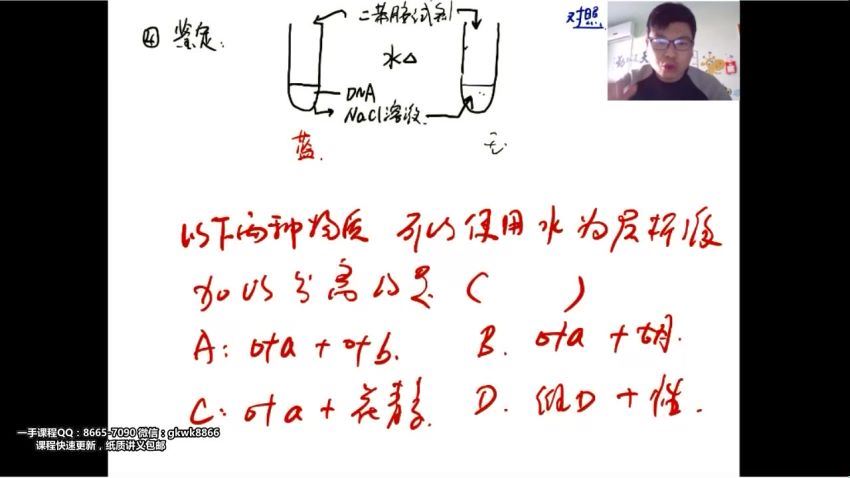 ④ 鉴定:
二苯胺试剂
对照
水△
DNA
NaCl溶液
蓝.
无
以下两种物质 可以使用水为层析液
加以分离的是 ( )
A: 叶a + 叶b.
B. 叶a + 胡.
C: 叶a + 花青素
D.
一手课程QQ:8665-7090 微信:gkwk8866
课程快速更新,纸质讲义包邮